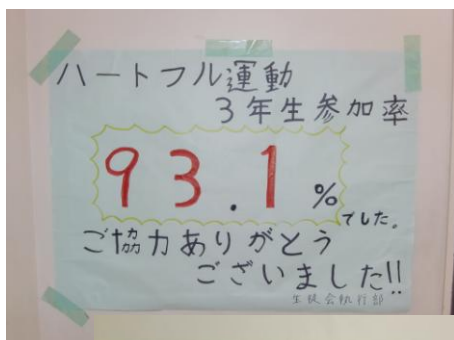 ハートフル運動
3年生参加率
93.1%
でした。
ご協力ありがとう
ございました!!
生徒会執行部